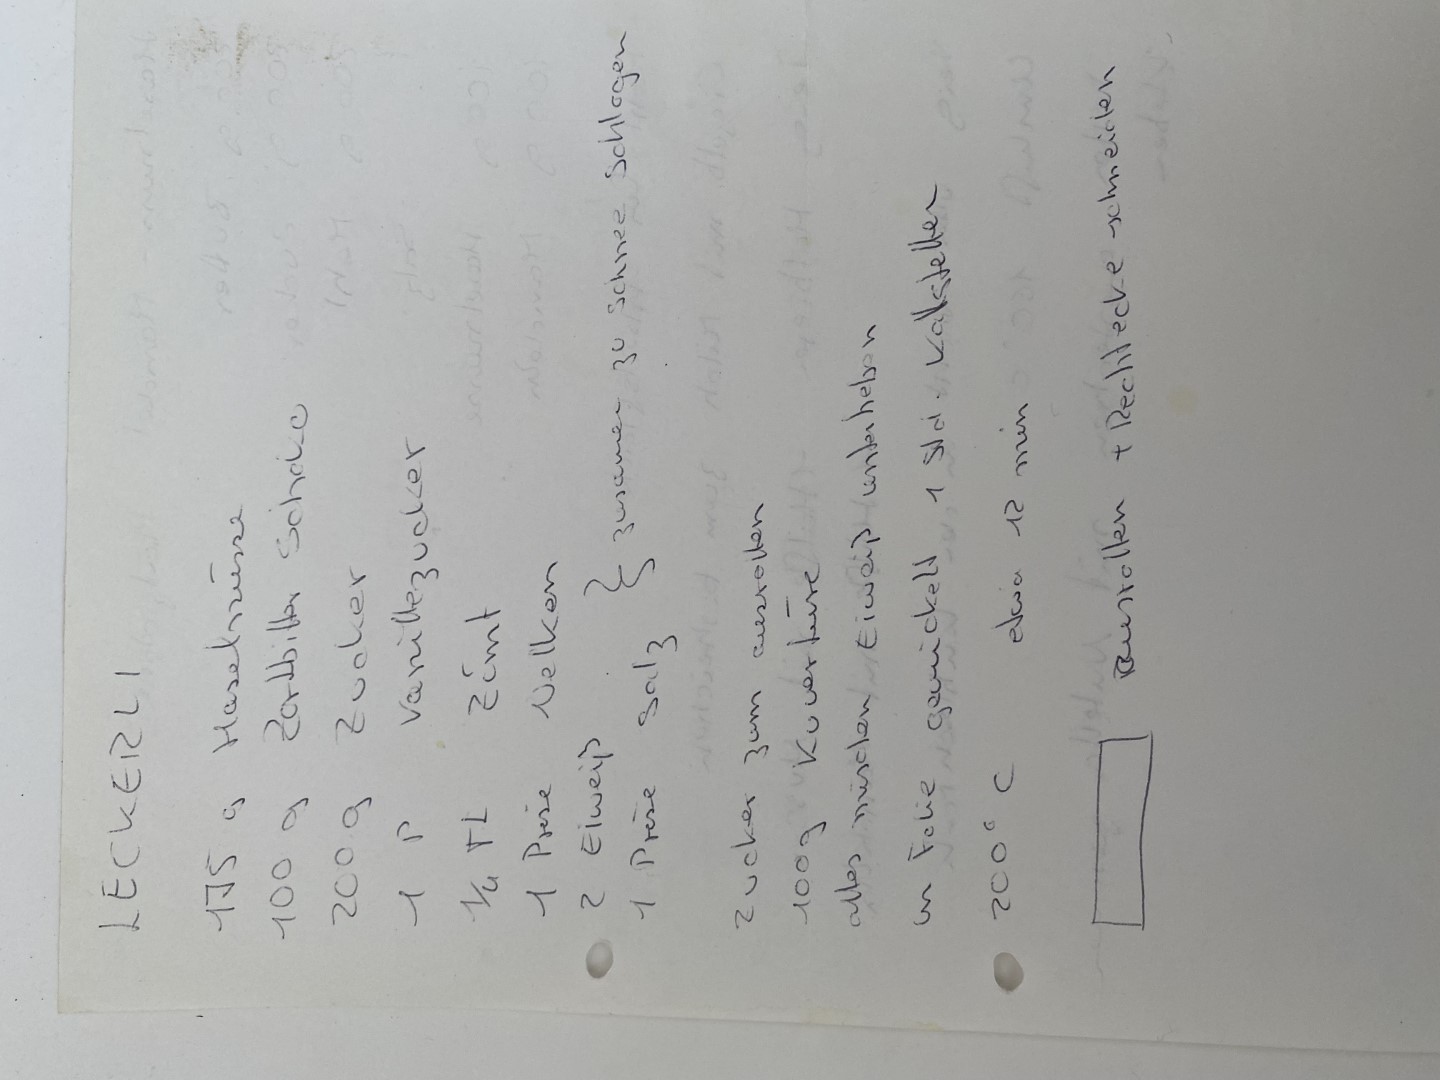 LECKERLI
175 g Haselnüsse
100 g Zartbitter Schoko
200 g Zucker
1 P Vanillezucker
1/4 TL Zimt
1 Prise Nelken
2 Eiweiß
1 Prise Salz } zusamen zu Schnee schlagen
Zucker zum ausrollen
100g Kuvertüre
alles mischen Eiweiß unterheben
in Folie gewickelt 1 Std. kaltstellen
200° C etwa 12 min
Ausrollen + Rechtecke schneiden